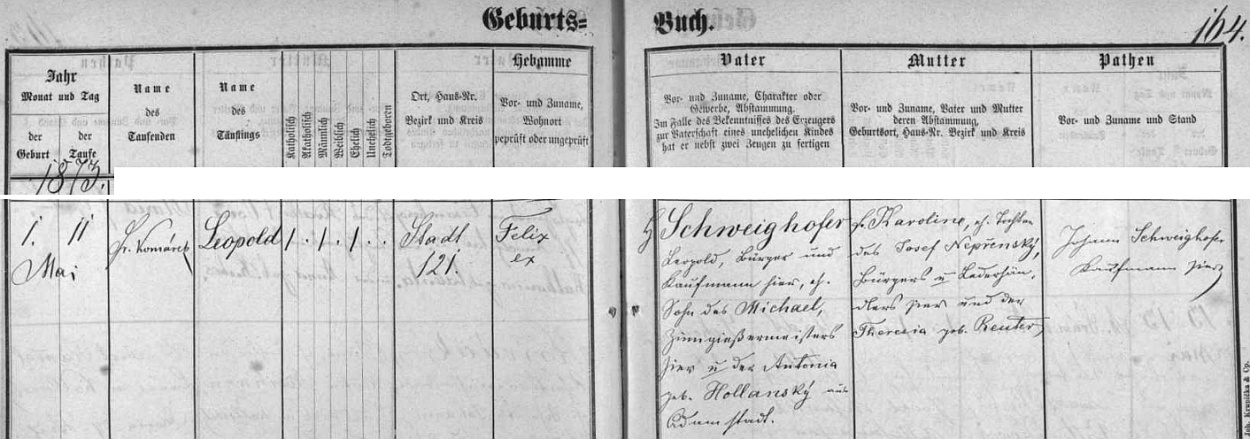 Geburts=
Buch.
164.
Jahr
Monat und Tag
der Geburt
der Taufe
1873.
Name
des
Taufenden
Name
des
Täuflings
Katholisch
Akatholisch
Männlich
Weiblich
Ehelich
Unehelich
Todtgeboren
Ort, Haus-Nr.
Bezirk und Kreis
Hebamme
Vor- und Zuname,
Wohnort
geprüft oder ungeprüft
Vater
Vor- und Zuname, Charakter oder
Gewerbe, Abstammung.
Im Falle des Bekenntnisses des Erzeugers
zur Vaterschaft eines unehelichen Kindes
hat er nebst zwei Zeugen zu fertigen
Mutter
Vor- und Zuname, Vater und Mutter
deren Abstammung.
Geburtsort, Haus-Nr. Bezirk und Kreis
Pathen
Vor- und Zuname und Stand
1. 11
Mai
Fr. Komárek
Leopold
1 . 1 . 1 . .
Stadt
121.
Felix
ex
Schweighofer
Leopold, Bürger und
Kaufmann hier, eh.
Sohn des Michael,
Zinngießermeisters
hier u der Antonia
geb. Hollanský aus
Adamstadt.
Karoline, eh. Tochter
des Josef Nepřenský,
Bürgers u Lederhän-
dlers hier und der
Theresia geb. Reuter
Johann Schweighofer
Kaufmann hier